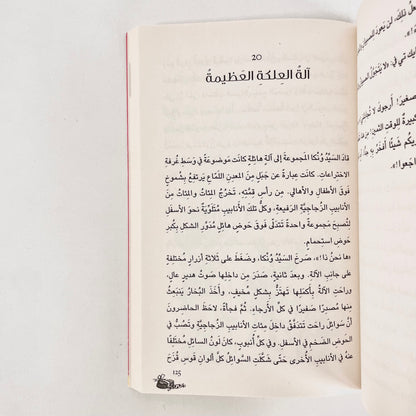 20
آلةُ العِلكةِ العَظيمةُ
قادَ السيّدُ وُنكا المَجموعةَ إلى آلةٍ هائلةٍ كانَت مَوضوعةً في وَسَطِ غُرفةِ
الاختراعاتِ. كانَت عبارةً عن جَبَلٍ مِنَ المعدِنِ اللَّماعِ يَرتفعُ بِشُموخٍ
فَوقَ الأطفالِ والأهالي. مِن رأسِ قِمَّتِهِ، تَخرُجُ المِئاتُ والمِئاتُ مِنَ
الأنابيبِ الزُّجاجيَّةِ الرَّفيعةِ، وكلُّ تلكَ الأنابيبِ مُتَلَوِّيَةٌ نحوَ الأسفلِ
لِتُصبحَ مَجموعةً واحدةً تَتدلَّى فَوقَ حَوضٍ هائلٍ مُدَوَّرِ الشكلِ بِكُبرِ
حَوضِ استِحمامٍ.
«ها نحنُ ذا!»، صَرخَ السيّدُ وُنكا، وضَغطَ على ثَلاثةِ أزرارٍ مُختلِفةٍ
على جانِبِ الآلةِ. وبعدَ ثانيةٍ، صَدَرَ مِن داخلِها صَوتُ هَديرٍ عالٍ،
وراحَتِ الآلةُ بأكمَلِها تَهتزُّ بِشكلٍ مُخيفٍ، وأخذَ البُخارُ يَنبَعِثُ
مِنها مُصدِرًا صَفيرًا في كلِّ الأرجاءِ. ثُمَّ فَجأةً، لاحظَ الحاضِرونَ
أنَّ سَوائلَ راحَت تَتدفَّقُ داخلَ مِئاتِ الأنابيبِ الزُّجاجيّةِ وتَصُبُّ في
الحَوضِ الضَّخمِ في الأسفلِ. وفي كلِّ أُنبوبٍ، كانَ لَونُ السائلِ مُختلِفًا
عنهُ في الأنابيبِ الأُخرى حتّى شَكَّلَتِ السَّوائلُ كلَّ ألوانِ قَوسِ قُزَحَ
125